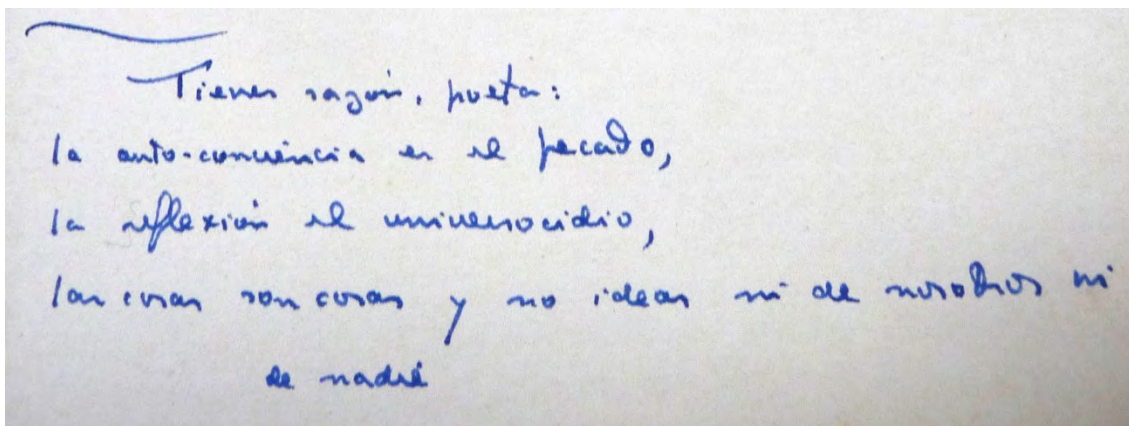 Tienes razón, poeta:
la auto-conciencia es el pecado,
la reflexión el universocidio,
las cosas son cosas y no ideas ni de nosotros ni
de nadie